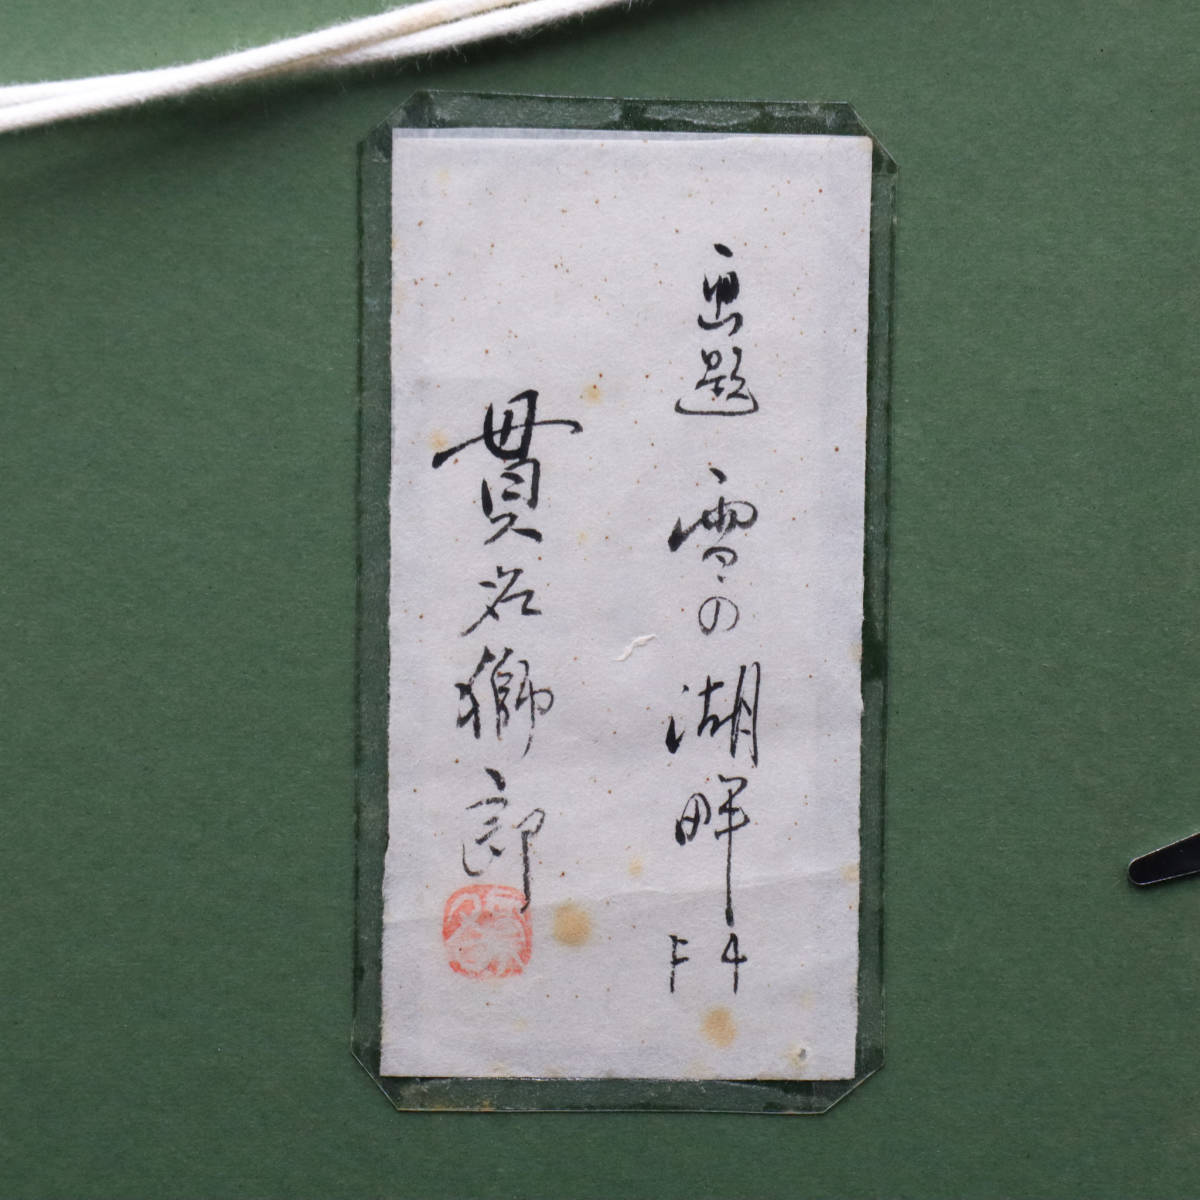 画題 雪の湖畔 F4
貫名獅郎